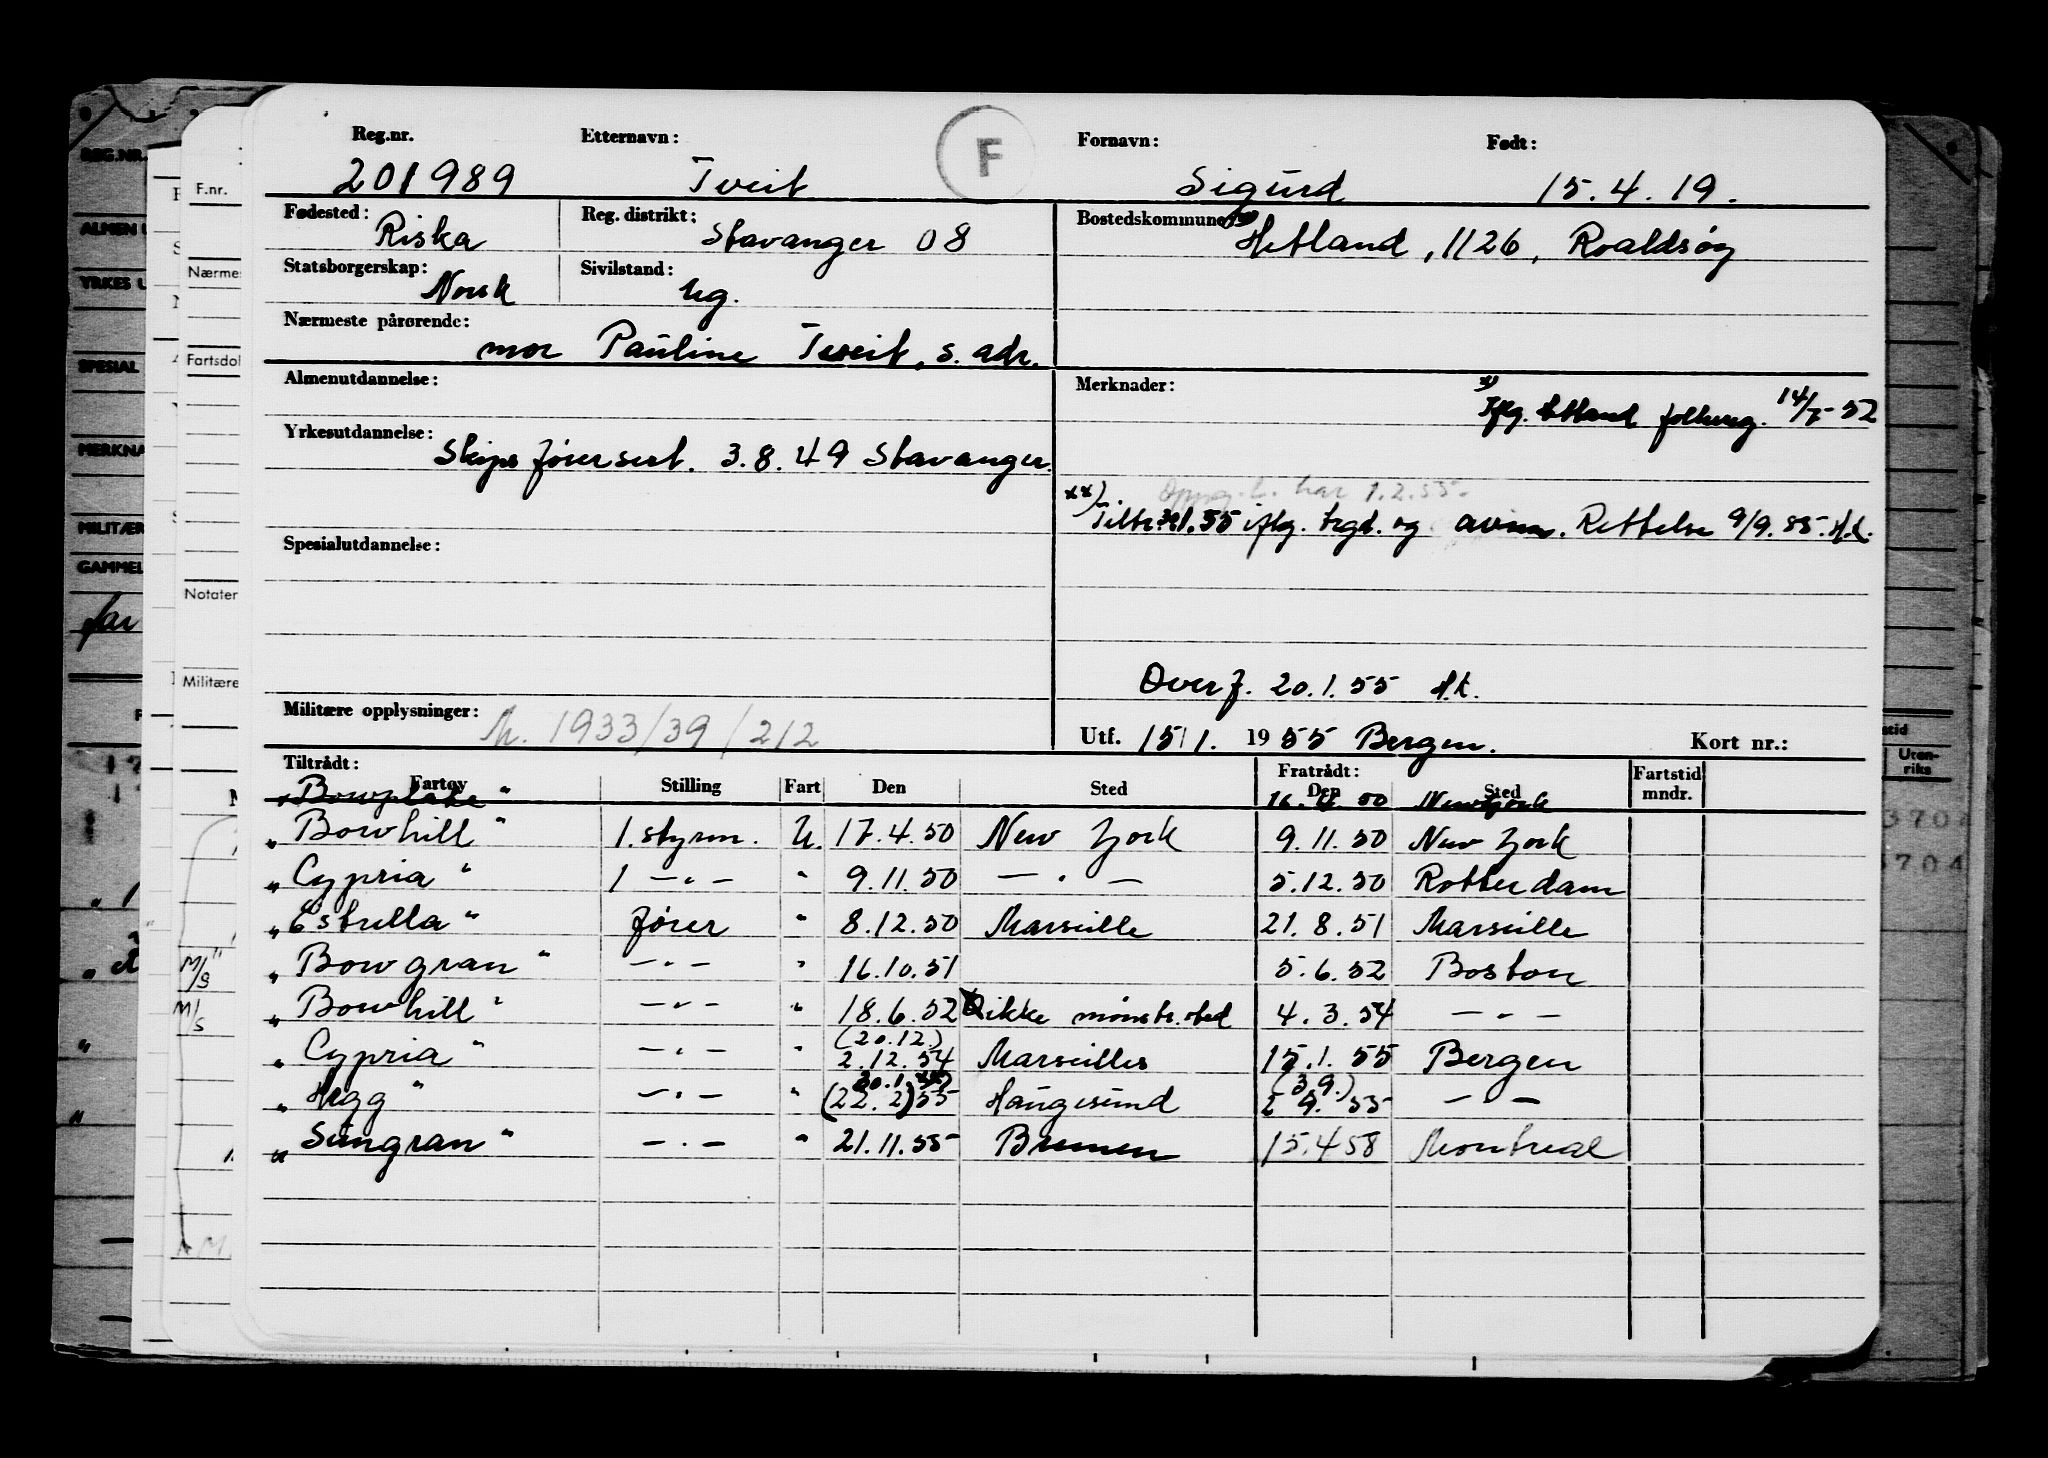 Reg.nr. Etternavn: F Fornavn: Født:
201989 Tveit Sigurd 15.4.19.
Fødested: Riska Reg. distrikt: Stavanger 08 Bostedskommune: Hetland, 1126, Roaldsøy
Statsborgerskap: Norsk Sivilstand: Ug.
Nærmeste pårørende:
mor Pauline Tveit, s. adr.
Almenutdannelse: Merknader:
x) Iflg. Hetland folkereg. 14/7-52
Yrkesutdannelse:
Skipsførersert. 3.8.49 Stavanger.
Oppg. har 1.2.55.
xx) Tiltr. 55 iflg. og Rettelse 9/9.55.
Spesialutdannelse:
Overf. 20.1.55
Militære opplysninger: M. 1933/39/212
Utf. 15/1. 1955 Bergen. Kort nr.:
Tiltrådt: Fratrådt: Fartstid
Fartøy Stilling Fart Den Sted Den Sted mndr.
16.4.50 New York
"Bowhill" 1. styrm. U. 17.4.50 New York 9.11.50 New York
"Cypria" 1 —"— " 9.11.50 —"— 5.12.50 Rotterdam
"Estrella" fører " 8.12.50 Marseille 21.8.51 Marseille
"Bowgran" —"— " 16.10.51 5.6.52 Boston
"Bowhill" —"— " 18.6.52 ikke mønstr.sted 4.3.54 —"—
(20.12.)
"Cypria" —"— " 2.12.54 Marseilles 15.1.55 Bergen
30.1. xx) (3.9.)
"Hegg" —"— " (22.2) 55 Haugesund 9. 55 —"—
"Sungran" —"— " 21.11.55 Bremen 15.4.58 Montreal
REG.NR.
ALMEN U
YRKES U
SPESIAL
MERKNA
MILITÆR
GAMMEL
far
F.nr.
Nærmes
Fartsdol
Notater
Militære
M/S
M/S
stid
Uten-
riks
3704
3704